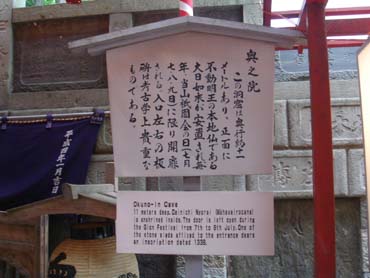 奥之院
この洞窟は奥行約十一
そこにあり、正面に
不動明王の本地仏である
大日如来が安置され毎
年、当山祇園会の日(七月
七八九日)に限り開扉
される。入口左右の板
碑は考古学上貴重な
ものである。
Okuno-in Cave
11 meters deep. Dainichi Nyorai (Mahavairocana)
is enshrined inside. The door is left open during
the Gion Festival from 7th to 9th July. One of
the stone slabs affixed to the entrance bears
an inscription dated 1338.
平成四年一月吉日